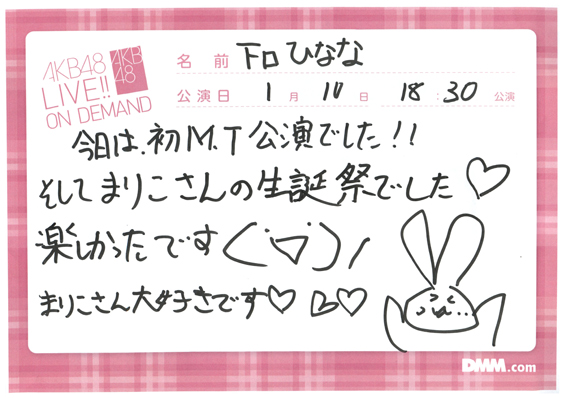 AKB48
LIVE!!
ON DEMAND
AKB
48
名前 下口ひなな
公演日 1月 10日 18:30 公演
今日は、初M.T公演でした!!
そしてまりこさんの生誕祭でした♡
楽しかったです
まりこさん大好きです♡
DMM.com